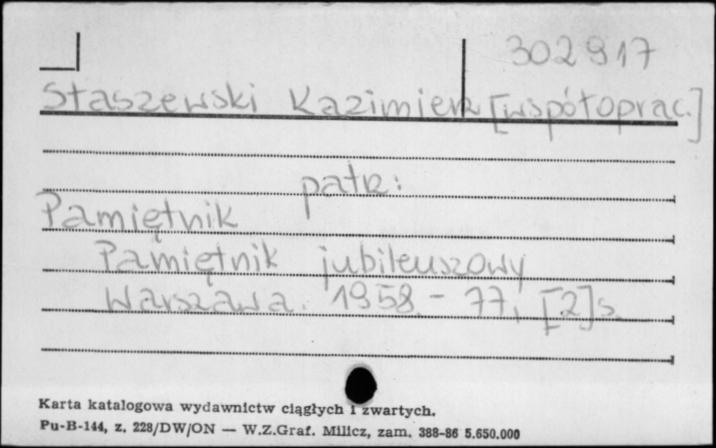 302917
Staszewski Kazimierz [współoprac.]
patrz:
Pamiętnik
Pamiętnik jubileuszowy
Warszawa. 1958. - 77, [2] s.
Karta katalogowa wydawnictw ciągłych i zwartych.
Pu-B-144, z. 228/DW/ON — W.Z.Graf. Milicz, zam. 388-86 5.650.000